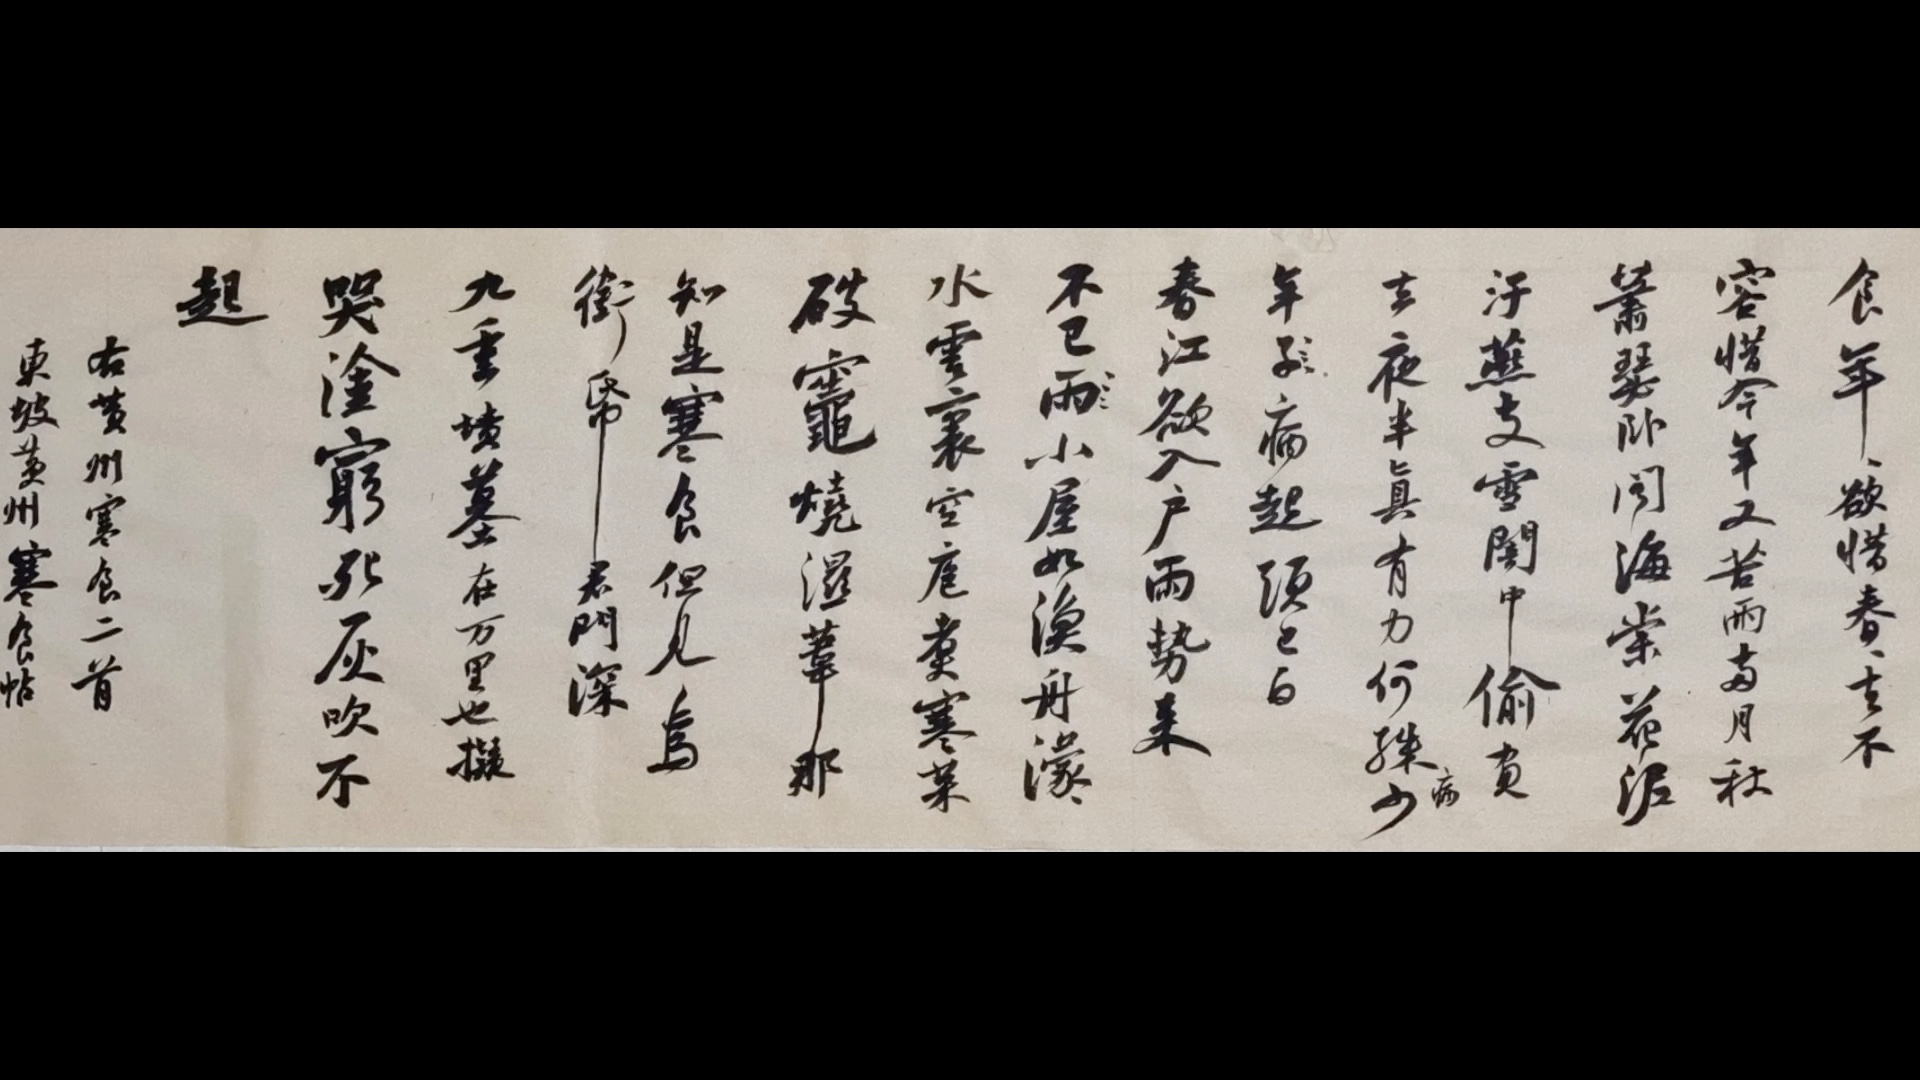 食年、欲惜春、去不
容惜今年又苦雨兩月秋
蕭瑟卧聞海棠花泥
汙燕支雪闇中偷負
去夜半真有力何殊少
病
年子〻病起頭已白
春江欲入户雨勢来
不已雨〻小屋如漁舟濛〻
水雲裏空庖煮寒菜
破竈燒濕葦那
知是寒食但見烏
銜帋君門深
九重墳墓在万里也擬
哭塗窮死灰吹不
起
右黄州寒食二首
東坡黄州寒食帖